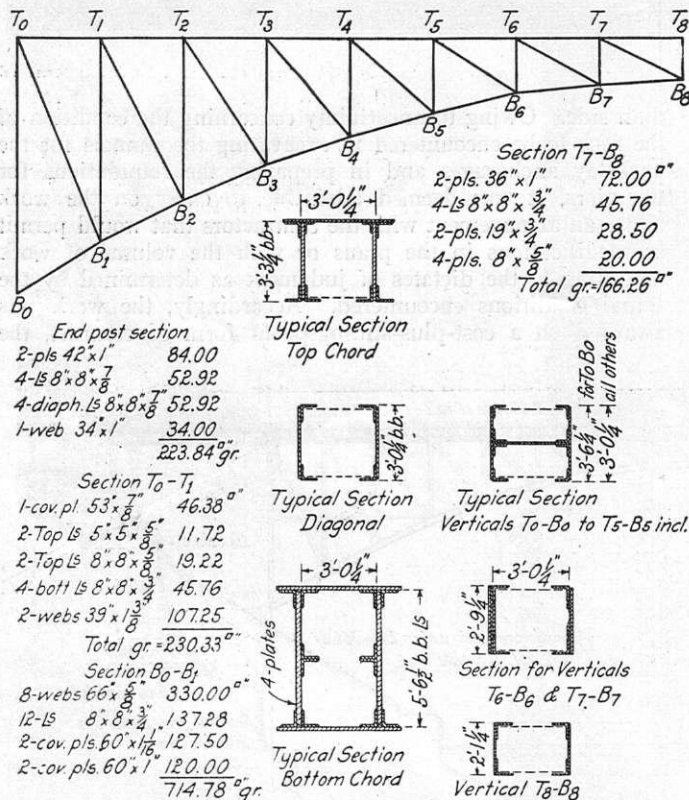 T0 T1 T2 T3 T4 T5 T6 T7 T8
B0 B1 B2 B3 B4 B5 B6 B7 B8
Section T7-B8
2-pls. 36"x1" 72.00▫"
4-Ls 8"x8"x3/4" 45.76
2-pls. 19"x3/4" 28.50
4-pls. 8"x5/8" 20.00
Total gr.=166.26▫"
3'-0 1/4"
3'-3 1/4" b.b.
Typical Section
Top Chord
End post section
2-pls 42"x1" 84.00
4-Ls 8"x8"x7/8" 52.92
4-diaph. Ls 8"x8"x7/8" 52.92
1-web 34"x1" 34.00
223.84▫"gr.
Section T0-T1
1-cov. pl. 53"x7/8" 46.38▫"
2-Top Ls 5"x5"x5/8" 11.72
2-Top Ls 8"x8"x5/8" 19.22
4-bott Ls 8"x8"x3/4" 45.76
2-webs 39"x1 3/8" 107.25
Total gr.=230.33▫"
Section B0-B1
8-webs 66"x5/8" 330.00▫"
12-Ls 8"x8"x3/4" 137.28
2-cov. pls. 60"x1 1/16" 127.50
2-cov. pls. 60"x1" 120.00
714.78▫"gr.
3'-0 1/4 b.b.
Typical Section
Diagonal
for T0 B0
all others
3'-6 1/4"
3'-0 1/4"
Typical Section
Verticals T0-B0 to T5-B5 incl.
3'-0 1/4"
4-plates
5'-6 1/2" b.b. Ls
Typical Section
Bottom Chord
3'-0 1/4"
2'-9 1/4"
Section for Verticals
T6-B6 & T7-B7
2'-1 1/4"
Vertical T8-B8